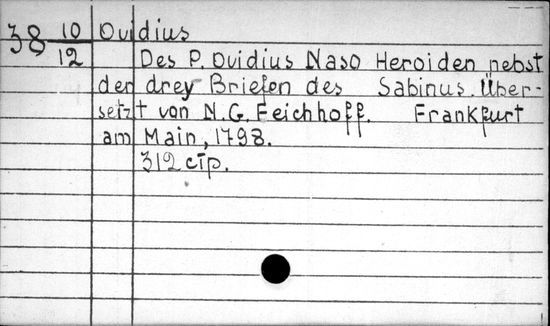 38 10/12 Ovidius
Des P. Ovidius Naso Heroiden nebst
den drey Briefen des Sabinus. Über-
setzt von N.G. Eichhoff. Frankfurt
am Main, 1798.
312 стр.